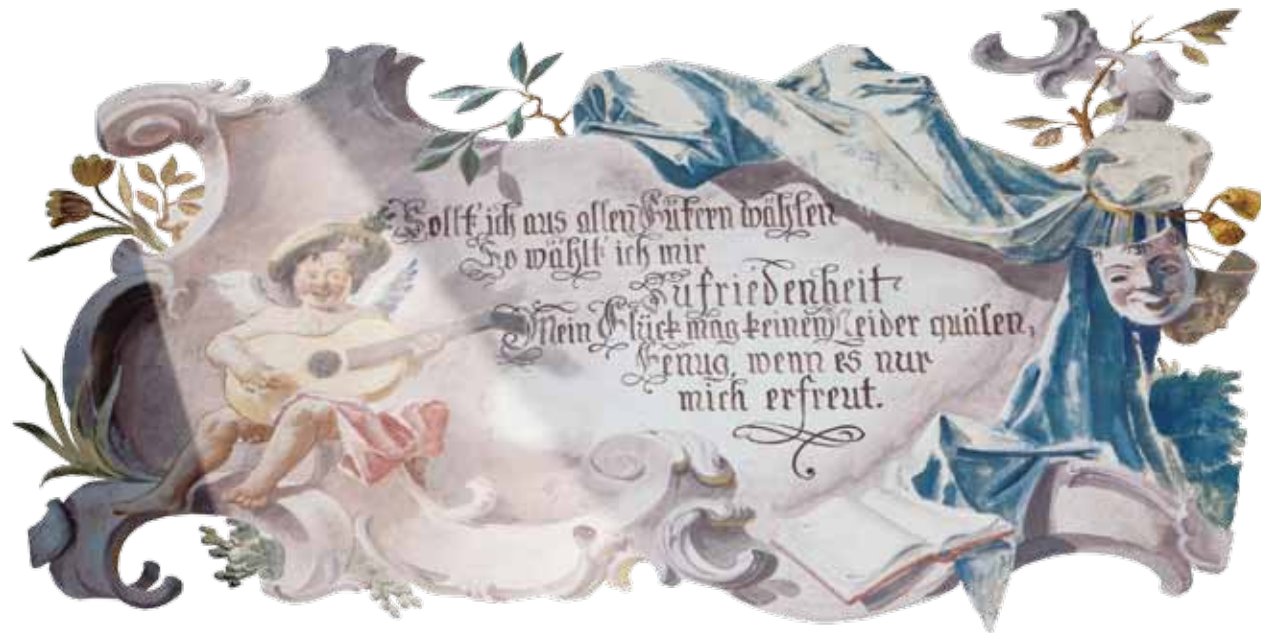 Sollt' ich aus allen Gütern wählen
So wählt' ich mir
Zufriedenheit
Mein Glück mag keinen Neider quälen,
Genug, wenn es nur
mich erfreut.